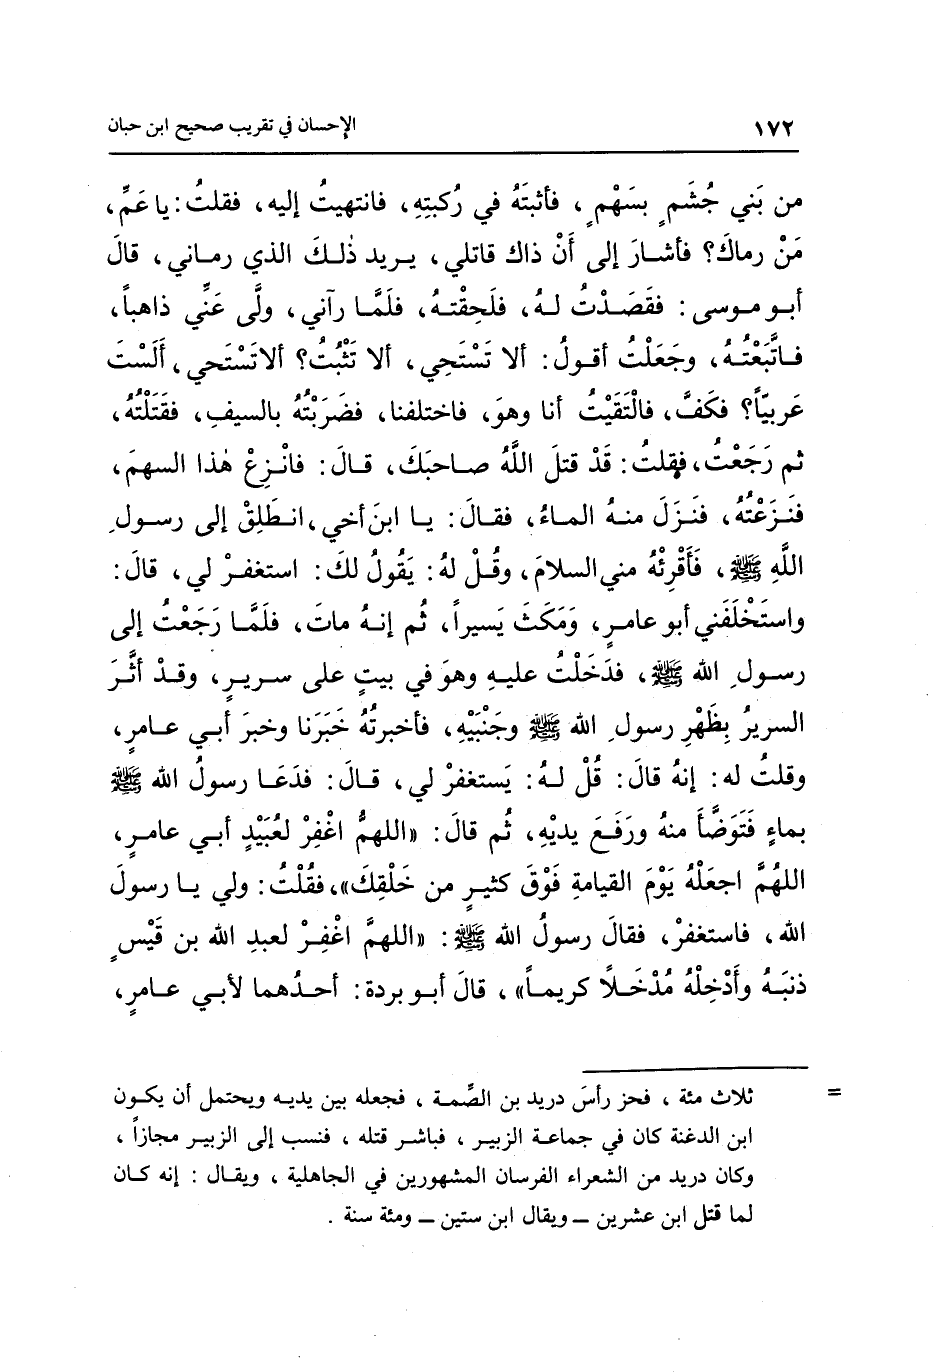 ١٧٢ الإحسان في تقريب صحيح ابن حبان
من بَني جُشَمٍ بسَهْمٍ ، فأثبتَهُ في رُكبتِهِ، فانتهيتُ إليه، فقلتُ: يا عَمِّ،
مَنْ رماكَ؟ فأشارَ إلى أَنْ ذاك قاتلي، يريد ذٰلكَ الذي رماني، قالَ
أبو موسى: فقَصَدْتُ لهُ، فلَحِقْتهُ، فلَمَّا رآني، ولَّى عَنِّي ذاهباً،
فاتَّبَعْتهُ، وجَعَلْتُ أقولُ: ألا تَسْتَحِي، ألا تَثْبُتُ؟ ألا تَسْتَحي، أَلَسْتَ
عَربيّاً؟ فكَفَّ، فالْتَقَيْتُ أنا وهوَ، فاختلفنا، فضَرَبْتُهُ بالسيفِ، فقَتَلْتُهُ،
ثم رَجَعْتُ، فقلتُ: قَدْ قتلَ اللَّهُ صاحبَكَ، قالَ: فانْزِعْ هٰذا السهمَ،
فنَزَعْتُهُ، فنَزَلَ منهُ الماءُ، فقالَ: يا ابنَ أخي، انطَلِقْ إلى رسولِ
اللَّهِ ﷺ، فَأَقْرِئْهُ مني السلامَ، وقُلْ لهُ: يَقُولُ لكَ: استغفرْ لي، قالَ:
واستَخْلَفَني أبو عامرٍ، وَمَكَثَ يَسيراً، ثُم إنهُ ماتَ، فلَمَّا رَجَعْتُ إلى
رسولِ الله ﷺ، فدَخَلْتُ عليهِ وهوَ في بيتٍ على سريرٍ، وقدْ أثَّرَ
السريرُ بِظَهْرِ رسولِ الله ﷺ وجَنْبَيْهِ، فأخبرتُهُ خَبَرَنا وخبرَ أبي عامرٍ،
وقلتُ له: إنهُ قالَ: قُلْ لهُ: يَستغفرْ لي، قالَ: فدَعَا رسولُ الله ﷺ
بماءٍ فَتَوَضَّأَ منهُ ورَفَعَ يديْهِ، ثُم قالَ: «اللهمُّ اغْفِرْ لعُبَيْدٍ أبي عامرٍ،
اللهُمَّ اجعَلْهُ يَوْمَ القيامةِ فَوْقَ كثيرٍ من خَلْقِكَ»، فقُلْتُ: ولي يا رسولَ
الله، فاستغفرْ، فقالَ رسولُ الله ﷺ: «اللهمَّ اغْفِرْ لعبدِ الله بن قَيْسٍ
ذنبَهُ وأَدْخِلْهُ مُدْخَلاً كريماً»، قالَ أبو بردة: أحدُهما لأبي عامرٍ،
= ثلاث مئة ، فحز رأسَ دريد بن الصِّمة ، فجعله بين يديه ويحتمل أن يكون
ابن الدغنة كان في جماعة الزبير ، فباشر قتله ، فنسب إلى الزبير مجازاً ،
وكان دريد من الشعراء الفرسان المشهورين في الجاهلية ، ويقال : إنه كان
لما قتل ابن عشرين ــ ويقال ابن ستين ــ ومئة سنة .